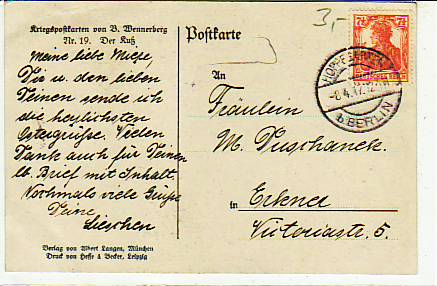 Kriegspostkarten von B. Wennerberg
Nr. 19. Der Kuß
Meine liebe Miese,
Dir u. den lieben
Deinen sende ich
die herzlichsten
Ostergrüße. Vielen
Dank auch für Deinen
lb. Brief mit Inhalt.
Nochmals viele Grüße
Deine
Lieschen
Verlag von Albert Langen, München
Druck von Hesse & Becker, Leipzig
3,-
Postkarte
7½
HOPPEGARTEN
-8.4.17.12
b. BERLIN
An
Fräulein
M. Duschaneck.
in Erkner
Victoriastr. 5.